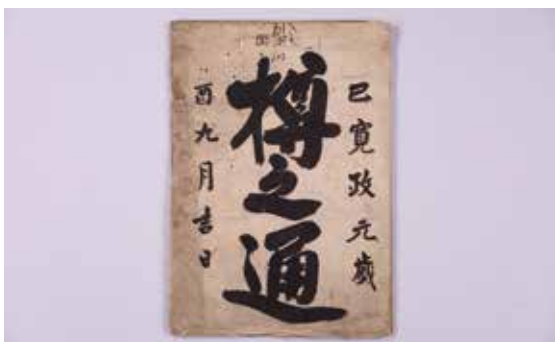 己寛政元歳
樽之通
酉九月吉日